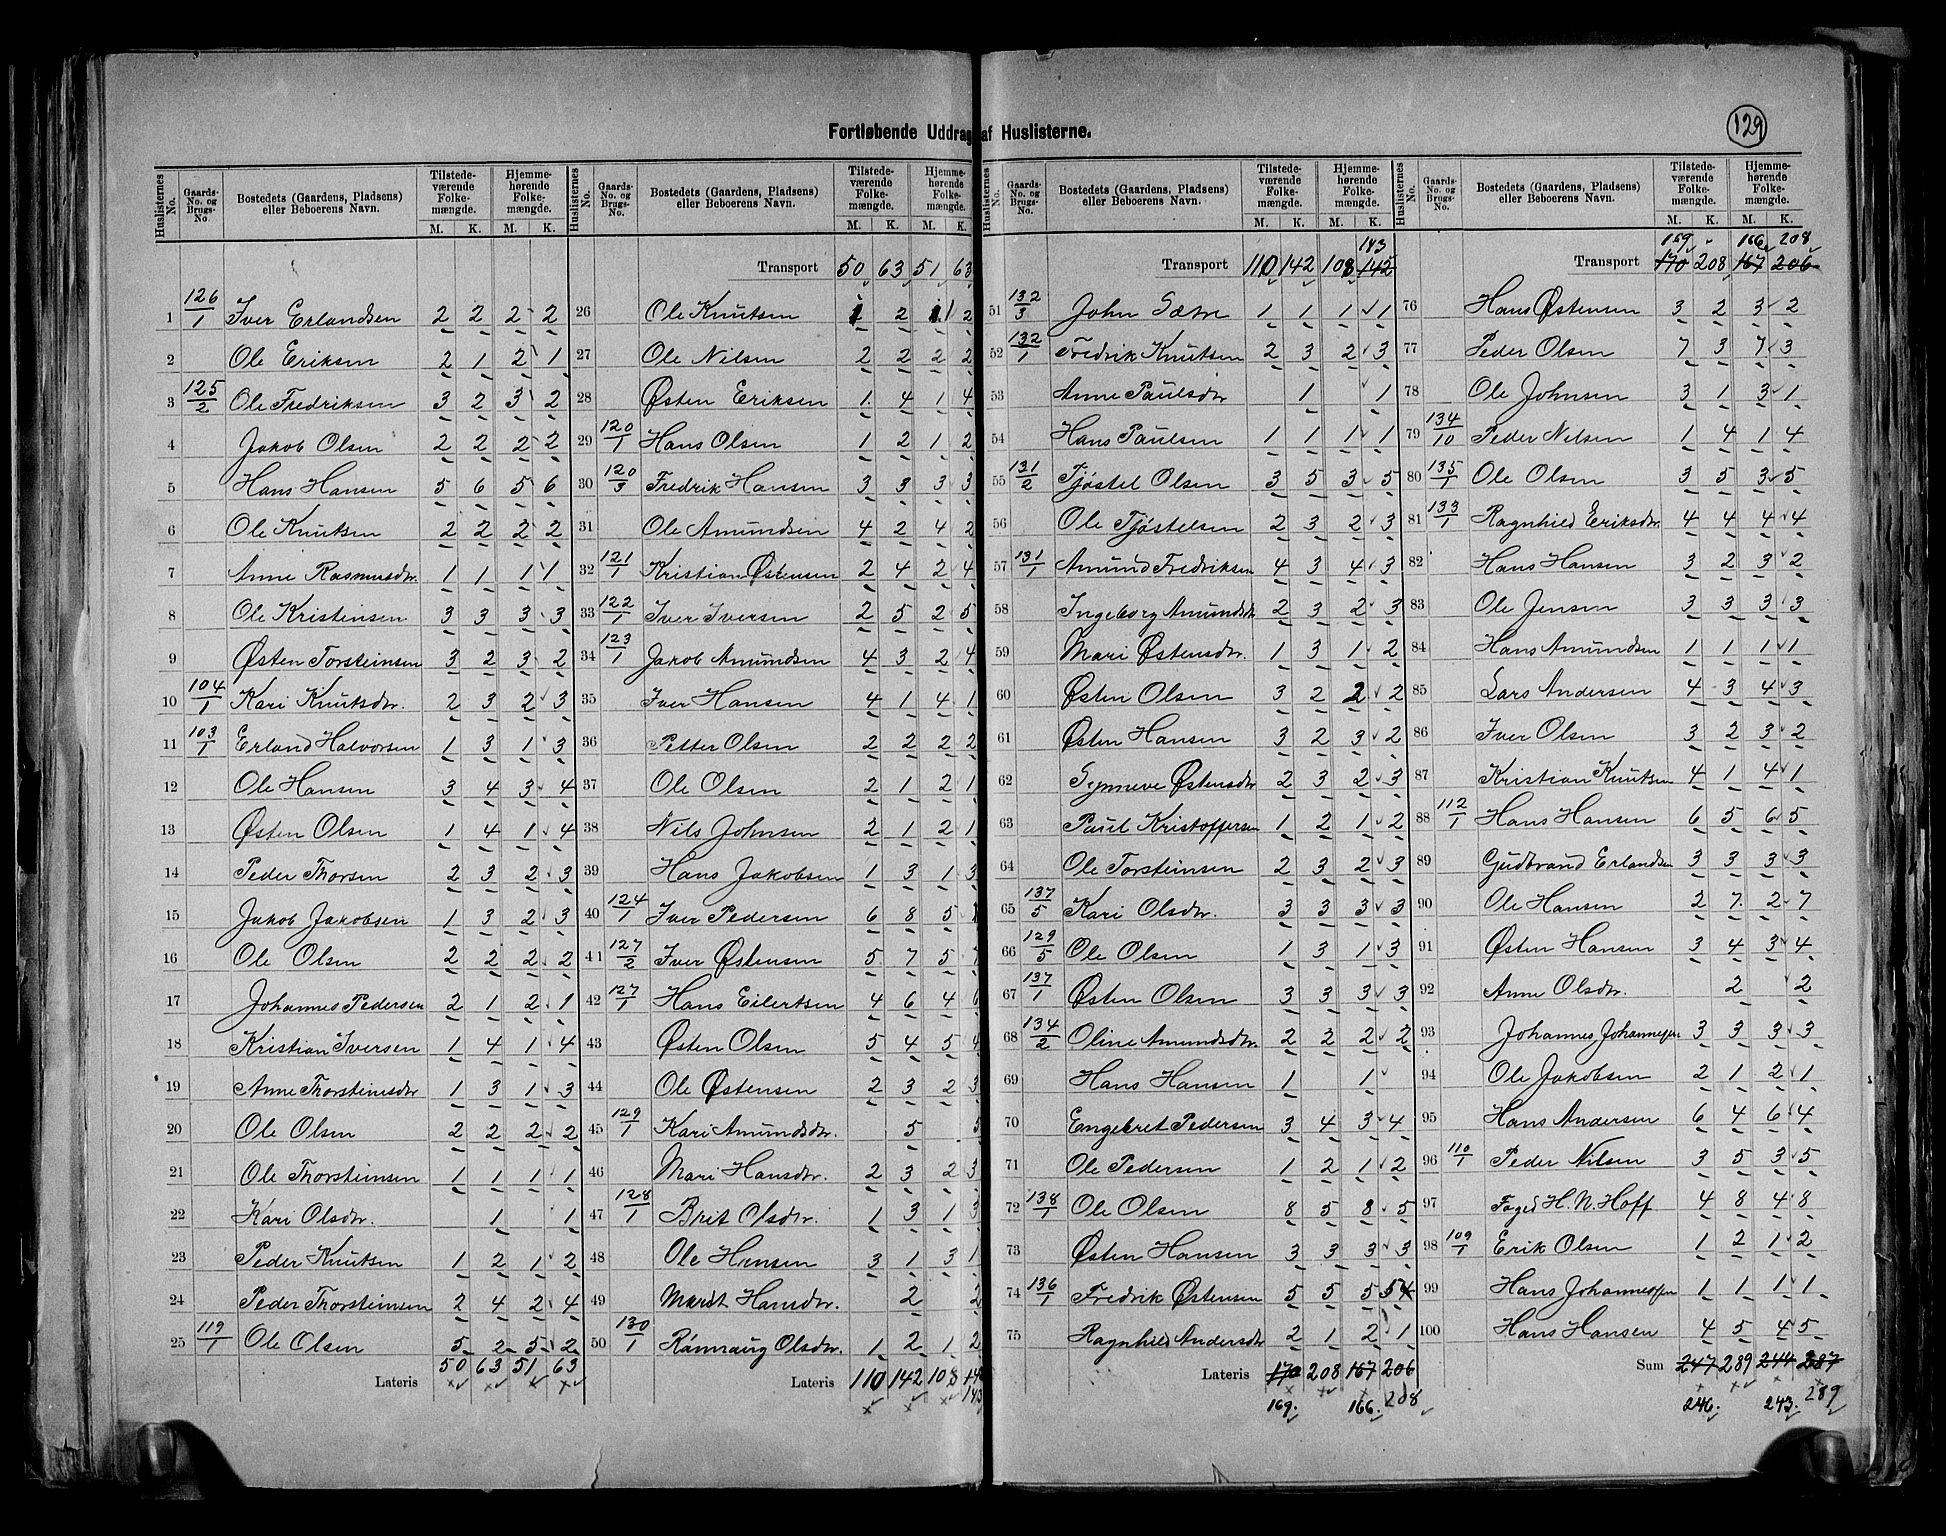 129
Fortløbende Uddrag af Huslisterne.
Huslisternes No. Gaards- No. og Brugs- No. Bostedets (Gaardens, Pladsens) eller Beboerens Navn. Tilstede- værende Folke- mængde. Hjemme- hørende Folke- mængde.
M. K. M. K.
1 126/1 Iver Erlandsen 2 2 2 2
2 Ole Eriksen 2 1 2 1
3 125/2 Ole Fredriksen 3 2 3 2
4 Jakob Olsen 2 2 2 2
5 Hans Hansen 5 6 5 6
6 Ole Knutsen 2 2 2 2
7 Anne Rasmusdtr. 1 1 1 1
8 Ole Kristensen 3 3 3 3
9 Østen Torsteinsen 3 2 3 2
10 104/1 Kari Knutsdtr. 2 3 2 3
11 103/1 Erland Halvorsen 1 3 1 3
12 Ole Hansen 3 4 3 4
13 Østen Olsen 1 4 1 4
14 Peder Thorsen 2 3 2 3
15 Jakob Jakobsen 1 3 2 3
16 Ole Olsen 2 2 2 2
17 Johannes Pedersen 2 1 2 1
18 Kristian Iversen 1 4 1 4
19 Anne Thorsteinsdtr 1 3 1 3
20 Ole Olsen 2 2 2 2
21 Ole Thorsteinsen 1 1 1 1
22 Kari Olsdtr. 1 1
23 Peder Knutsen 1 2 1 2
24 Peder Thorsteinsen 2 4 2 4
25 119/1 Ole Olsen 5 2 5 2
Lateris 50 63 51 63
Huslisternes No. Gaards- No. og Brugs- No. Bostedets (Gaardens, Pladsens) eller Beboerens Navn. Tilstede- værende Folke- mængde. Hjemme- hørende Folke- mængde.
M. K. M. K.
Transport 50 63 51 63
26 Ole Knutsen 1 2 1 2
27 Ole Nilsen 2 2 2 2
28 Østen Eriksen 1 4 1 4
29 120/1 Hans Olsen 1 2 1 2
30 120/3 Fredrik Hansen 3 3 3 3
31 Ole Amundsen 4 2 4 2
32 121/1 Kristian Østensen 2 4 2 4
33 122/1 Iver Iversen 2 5 2 5
34 123/1 Jakob Amundsen 4 3 2 4
35 Iver Hansen 4 1 4 1
36 Petter Olsen 2 2 2 2
37 Ole Olsen 2 1 2 1
38 Nils Johnsen 2 1 2 1
39 Hans Jakobsen 1 3 1 3
40 124/1 Iver Pedersen 6 8 5
41 127/2 Iver Østensen 5 7 5 7
42 127/1 Hans Eilertsen 4 6 4 6
43 Østen Olsen 5 4 5 4
44 Ole Østensen 2 3 2 3
45 129/1 Kari Amundsdtr. 5
46 Mari Hansdtr. 2 3 2 3
47 128/1 Brit Olsdtr. 1 3 1 3
48 Ole Hansen 3 1 3 1
49 Marit Hansdtr. 2 2
50 130/1 Rønnaug Olsdtr. 1 2 1 2
Lateris 110 142 108
143
Huslisternes No. Gaards- No. og Brugs- No. Bostedets (Gaardens, Pladsens) eller Beboerens Navn. Tilstede- værende Folke- mængde. Hjemme- hørende Folke- mængde.
M. K. M. K.
143
Transport 110 142 108 142
51 132/3 John Sætre 1 1 1 1
52 132/1 Fredrik Knutsen 2 3 2 3
53 Anne Paulsdtr 1 1
54 Hans Paulsen 1 1 1 1
55 131/2 Tjøstel Olsen 3 5 3 5
56 Ole Tjøstelsen 2 3 2 3
57 131/1 Amund Fredriksen 4 3 4 3
58 Ingeborg Amundsdtr 2 3 2 3
59 Mari Østensdtr. 1 3 1 2
60 Østen Olsen 3 2 2 2
61 Østen Hansen 3 2 3 2
62 Synneve Østensdtr 2 3 2 3
63 Paul Kristoffersen 1 2 1 2
64 Ole Torsteinsen 2 3 2 3
65 137/5 Kari Olsdtr. 3 3 3 3
66 129/5 Ole Olsen 1 3 1 3
67 137/1 Østen Olsen 3 3 3 3
68 134/2 Oline Amundsdtr. 2 2 2 2
69 Hans Hansen 1 1
70 Engebret Pedersen 3 4 3 4
71 Ole Pedersen 1 2 1 2
72 138/1 Ole Olsen 8 5 8 5
73 Østen Hansen 3 3 3 3
74 136/1 Fredrik Østensen 5 5 5 5 4
75 Ragnhild Andersdtr 2 1 2 1
Lateris 170 208 167 206
169. 166. 208
Huslisternes No. Gaards- No. og Brugs- No. Bostedets (Gaardens, Pladsens) eller Beboerens Navn. Tilstede- værende Folke- mængde. Hjemme- hørende Folke- mængde.
M. K. M. K.
169 " 166 208
Transport 170 208 167 206
76 Hans Østensen 3 2 3 2
77 Peder Olsen 7 3 7 3
78 Ole Johnsen 3 1 3 1
79 134/10 Peder Nilsen 1 4 1 4
80 135/1 Ole Olsen 3 5 3 5
81 133/1 Ragnhild Eriksdtr. 4 4 4 4
82 Hans Hansen 3 2 3 2
83 Ole Jensen 3 3 3 3
84 Hans Amundsen 1 1 1 1
85 Lars Andersen 4 3 4 3
86 Iver Olsen 3 2 3 2
87 Kristian Knutsen 4 1 4 1
88 112/1 Hans Hansen 6 5 6 5
89 Gudbrand Erlandsen 3 3 3 3
90 Ole Hansen 2 7 2 7
91 Østen Hansen 3 4 3 4
92 Anne Olsdtr. 2 2
93 Johannes Johannesen 3 3 3 3
94 Ole Jakobsen 2 1 2 1
95 Hans Andersen 6 4 6 4
96 110/1 Peder Nilsen 3 5 3 5
97 Foged H. N. Hoff 4 8 4 8
98 109/1 Erik Olsen 1 2 1 2
99 Hans Johannessen 1 1 1 1
100 Hans Hansen 4 5 4 5
Sum 247 289 244 287
246. 243. 289